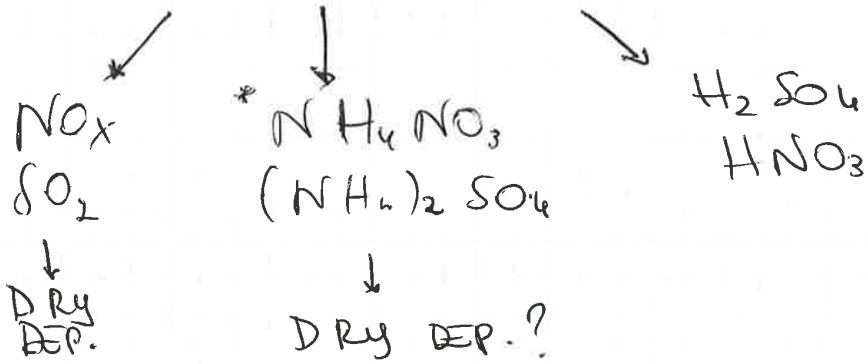 NOx
SO2
DRY
DEP.
* NH4 NO3
(NH4)2 SO4
DRY DEP.?
H2 SO4
HNO3